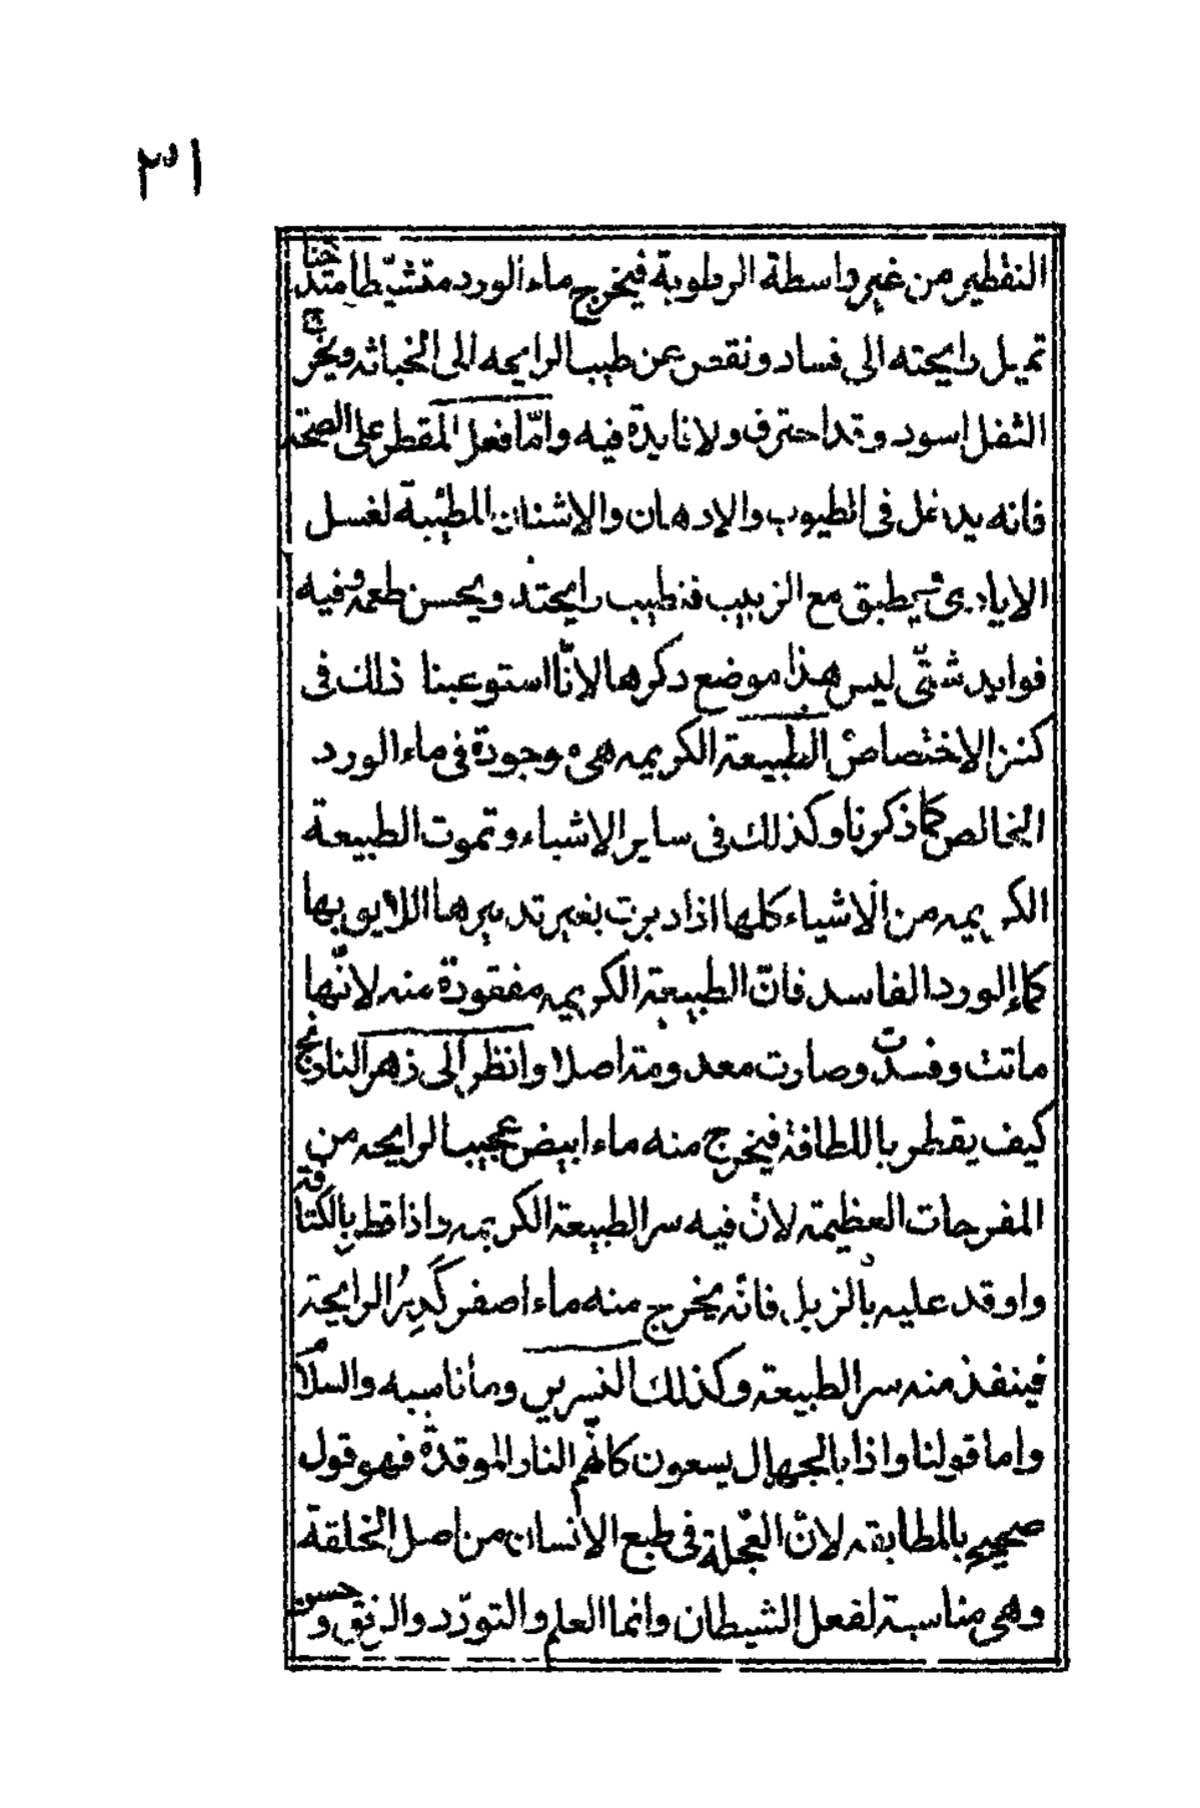 ٣١
التقطير من غير واسطة الرطوبة فيخرج ماء الورد متشيّطا متدخنا
تميل رايحته الى فساد ونقص عن طيب الرايحه الى الخباثه ويخرج
الثفل اسود وقد احترق ولا فايدة فيه وامّا فعل المقطر على الصحّة
فانه يدخل فى الطيوب والادهان والاشنان المطيّبة لغسل
الايادى ثم يطبق مع الزبيب فتطيب رايحته ويحسن طعمه وفيه
فوايد شتّى ليس هذا موضع ذكرها لانّا استوعبنا ذلك فى
كنز الاختصاص الطبيعة الكريمه هى موجودة فى ماء الورد
الخالص كما ذكرنا وكذلك فى ساير الاشياء وتموت الطبيعة
الكريمه من الاشياء كلها اذا دبرت بغير تدبيرها اللايق بها
كماء الورد الفاسد فانّ الطبيعة الكريمه مفقودة منه لانّها
ماتت وفسدت وصارت معدومة اصلا وانظر الى زهر النارنج
كيف يقطر باللطافة فيخرج منه ماء ابيض عجيب الرايحه من
المفرحات العظيمة لان فيه سر الطبيعة الكريمه واذا قطر بالكثافة
واوقد عليه بالزبل فانّه يخرج منه ماء اصفر كَدِرُ الرايحة
فينفذ منه سر الطبيعة وكذلك النسرين وما ناسبه والسلام
واما قولنا واذا بالجهال يسعون كانّهم النار الموقدة فهو قول
صحيح بالمطابقة لانّ العجلة فى طبع الانسان من اصل الخلقة
وهى مناسبة لفعل الشيطان وانما العلم والتودّد والرفق وحسن